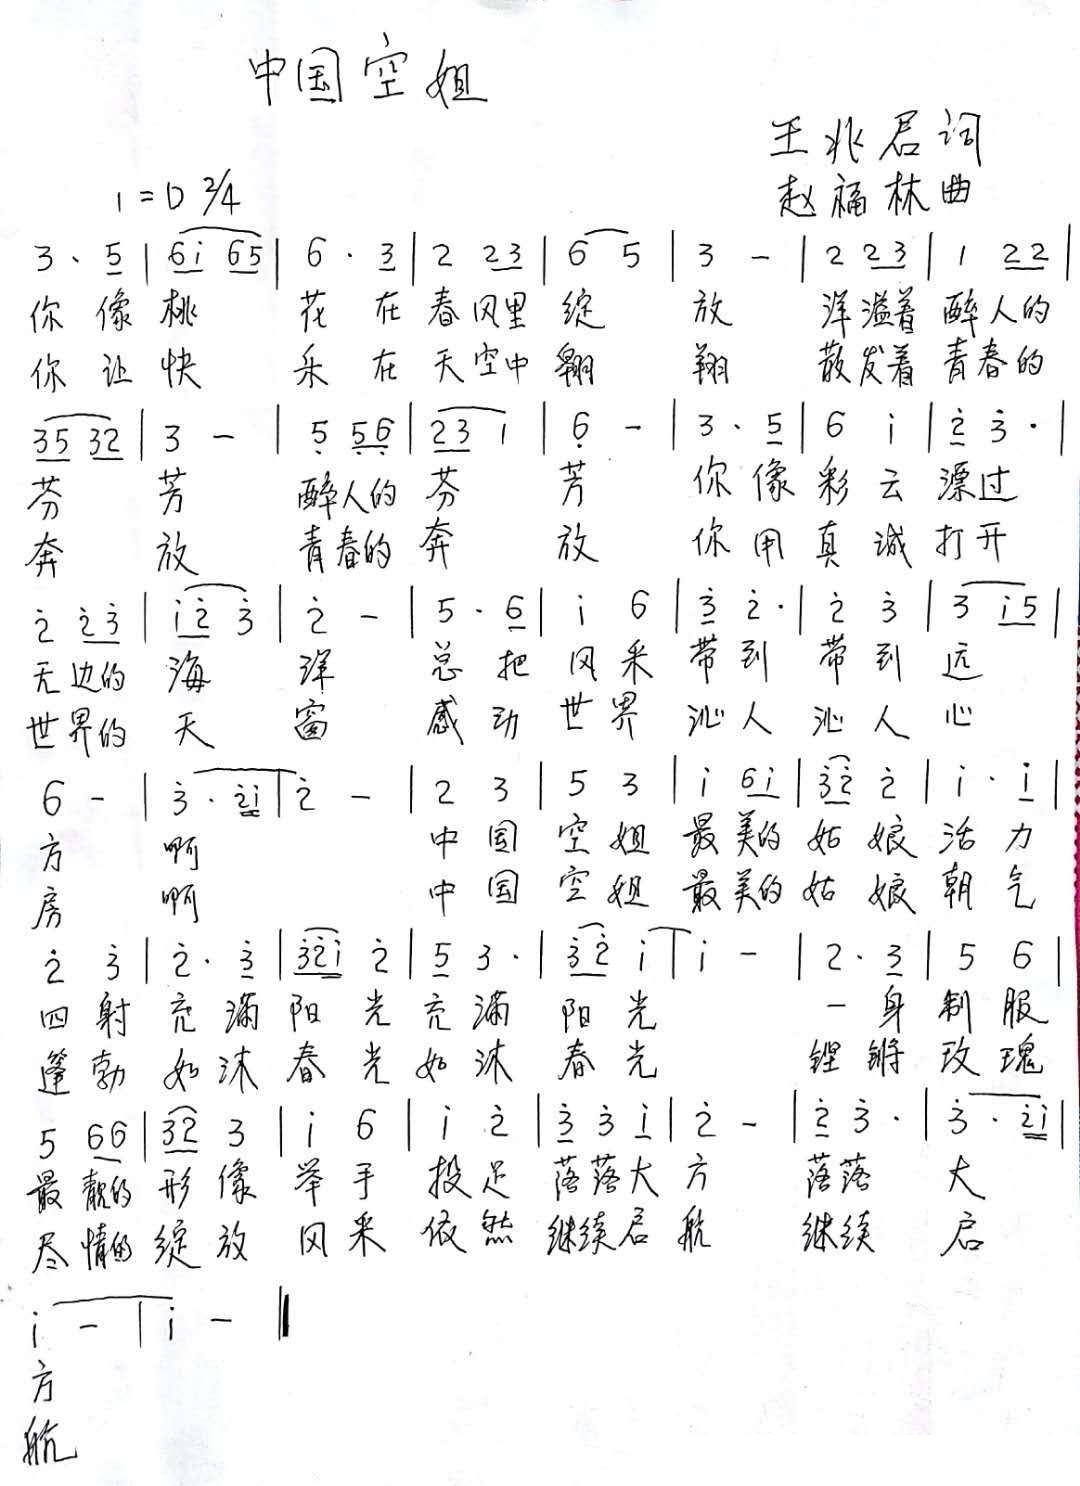 中国空姐
王兆君词
1=D 2/4
赵福林曲
3 · 5 | 6i 65 | 6 · 3 | 2 23 | 6 5 | 3 - | 2 23 | 1 22 |
你像桃 花在春风里绽 放 洋溢着醉人的
你让快 乐在天空中翱 翔 散发着青春的
35 32 | 3 - | 5 56 | 23 1 | 6 - | 3 · 5 | 6 i | 2 3 · |
芬 芳 醉人的芬 芳 你像彩云漂过
奔 放 青春的奔 放 你用真诚打开
2 23 | i2 3 | 2 - | 5 · 6 | i 6 | 3 2 · | 2 3 | 3 i5 |
无边的海 洋 总把风采带到带到远
世界的天 窗 感动世界沁人沁人心
6 - | 3 · 2i | 2 - | 2 3 | 5 3 | i 6i | 32 2 | i · i |
方 啊 中国空姐最美的姑娘活力
房 啊 中国空姐最美的姑娘朝气
2 3 | 2 · 3 | 32i 2 | 5 3 · | 32 i | i - | 2 · 3 | 5 6 |
四射充满阳光充满阳光 一身制服
蓬勃如沐春光如沐春光 铿锵玫瑰
5 66 | 32 3 | i 6 | i 2 | 3 3 i | 2 - | 2 3 · | 3 · 2i |
最靓的形像举手投足落落大方 落落大
尽情的绽放风采依然继续启航 继续启
i - | i - ‖
方
航